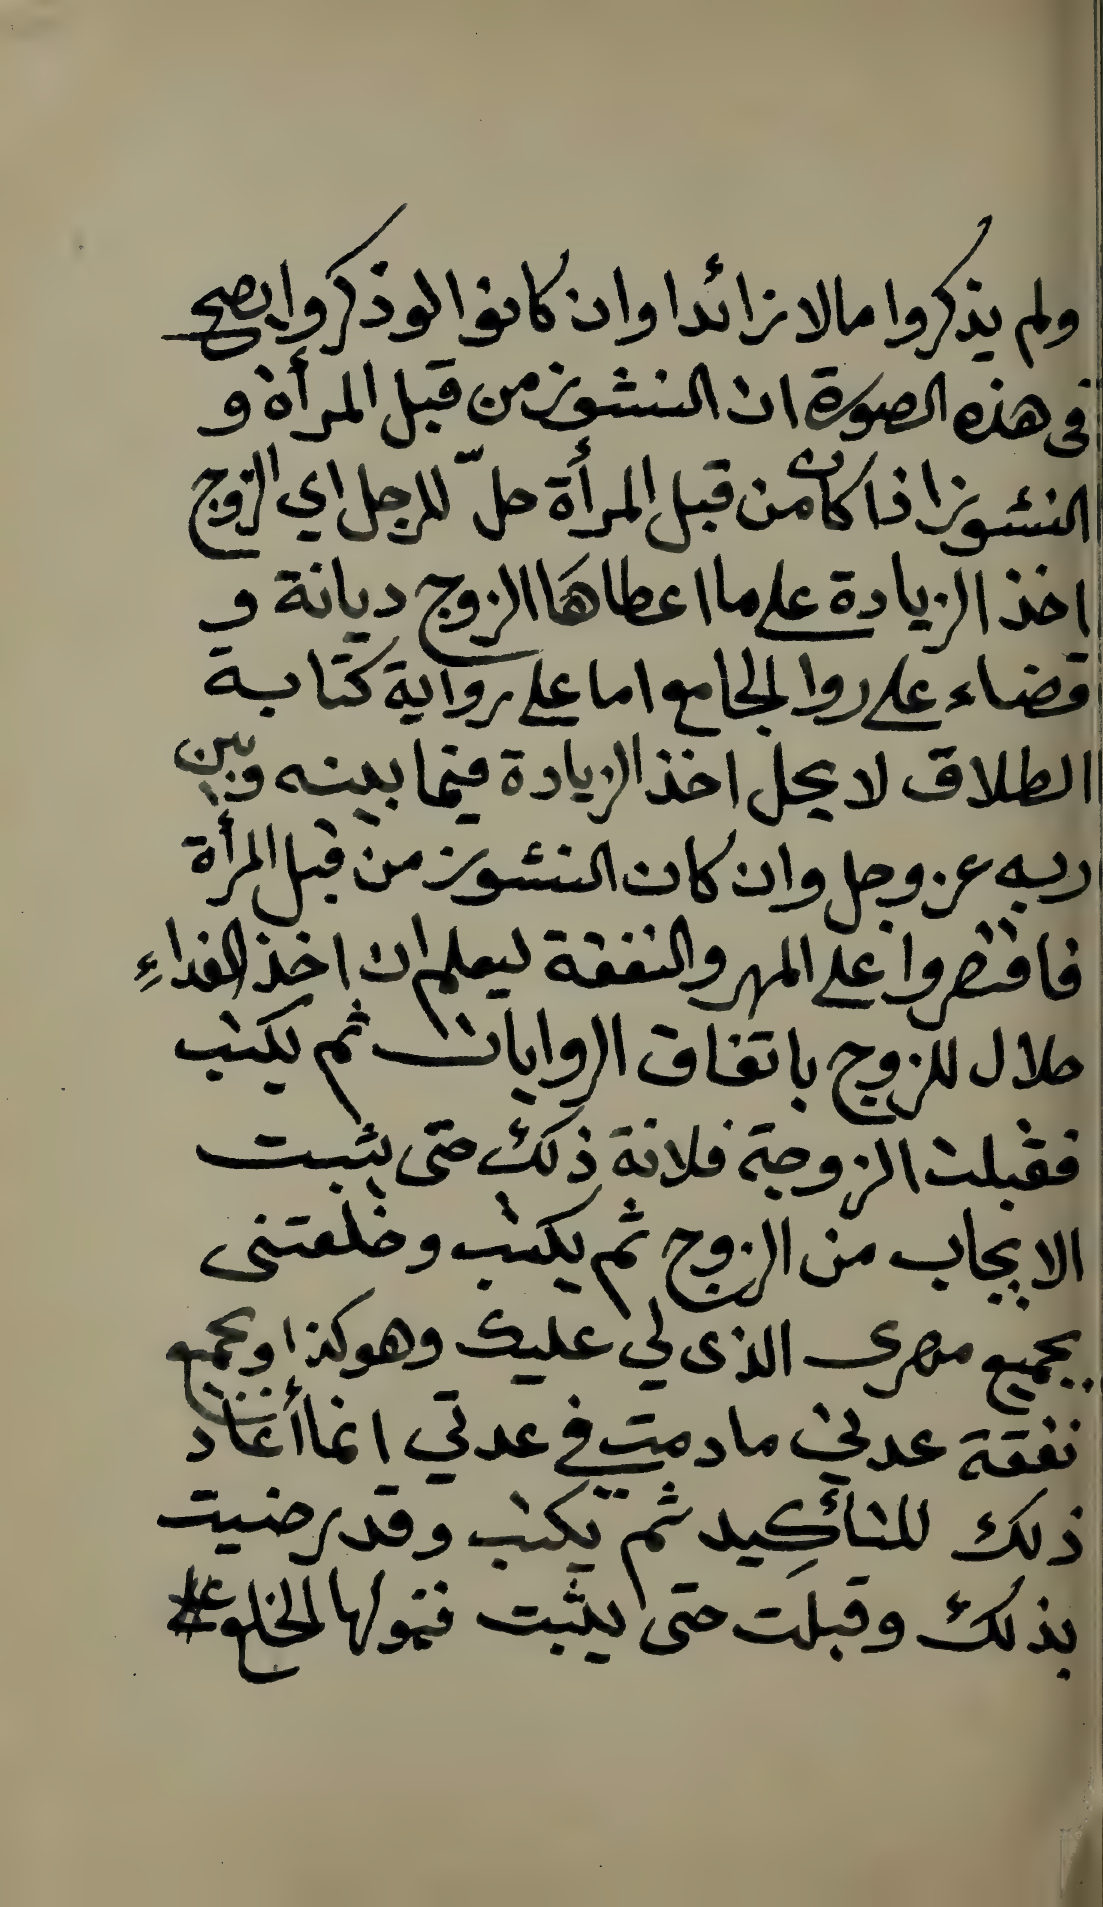 ولم يذكروا مالا زائدا وان كانوا لو ذكروا يصح
فى هذه الصورة ان النشوز من قبل المرأة و
النشوز اذا كان من قبل المرأة حلّ للرجل اي الزوج
اخذ الزيادة على ما اعطاها الزوج ديانة و
قضاء على روا الجامع اما على رواية كتابة
الطلاق لا يحل اخذ الزيادة فيما بينه وبين
ربه عز وجل وان كان النشوز من قبل المرأة
فاقتصروا على المهر والنفقة ليعلم ان اخذ الفداء
حلال للزوج باتفاق الروايات ثم يكتب
فقبلت الزوجة فلانة ذلك حتى يثبت
الايجاب من الزوج ثم يكتب وخلعتنى
بجميع مهرى الذى لي عليك وهو كذا وبجميع
نفقة عدتي ما دمت في عدتي انما أعاد
ذلك للتأكيد ثم يكتب وقد رضيت
بذلك وقبلت حتى يثبت قبولها الخلع على